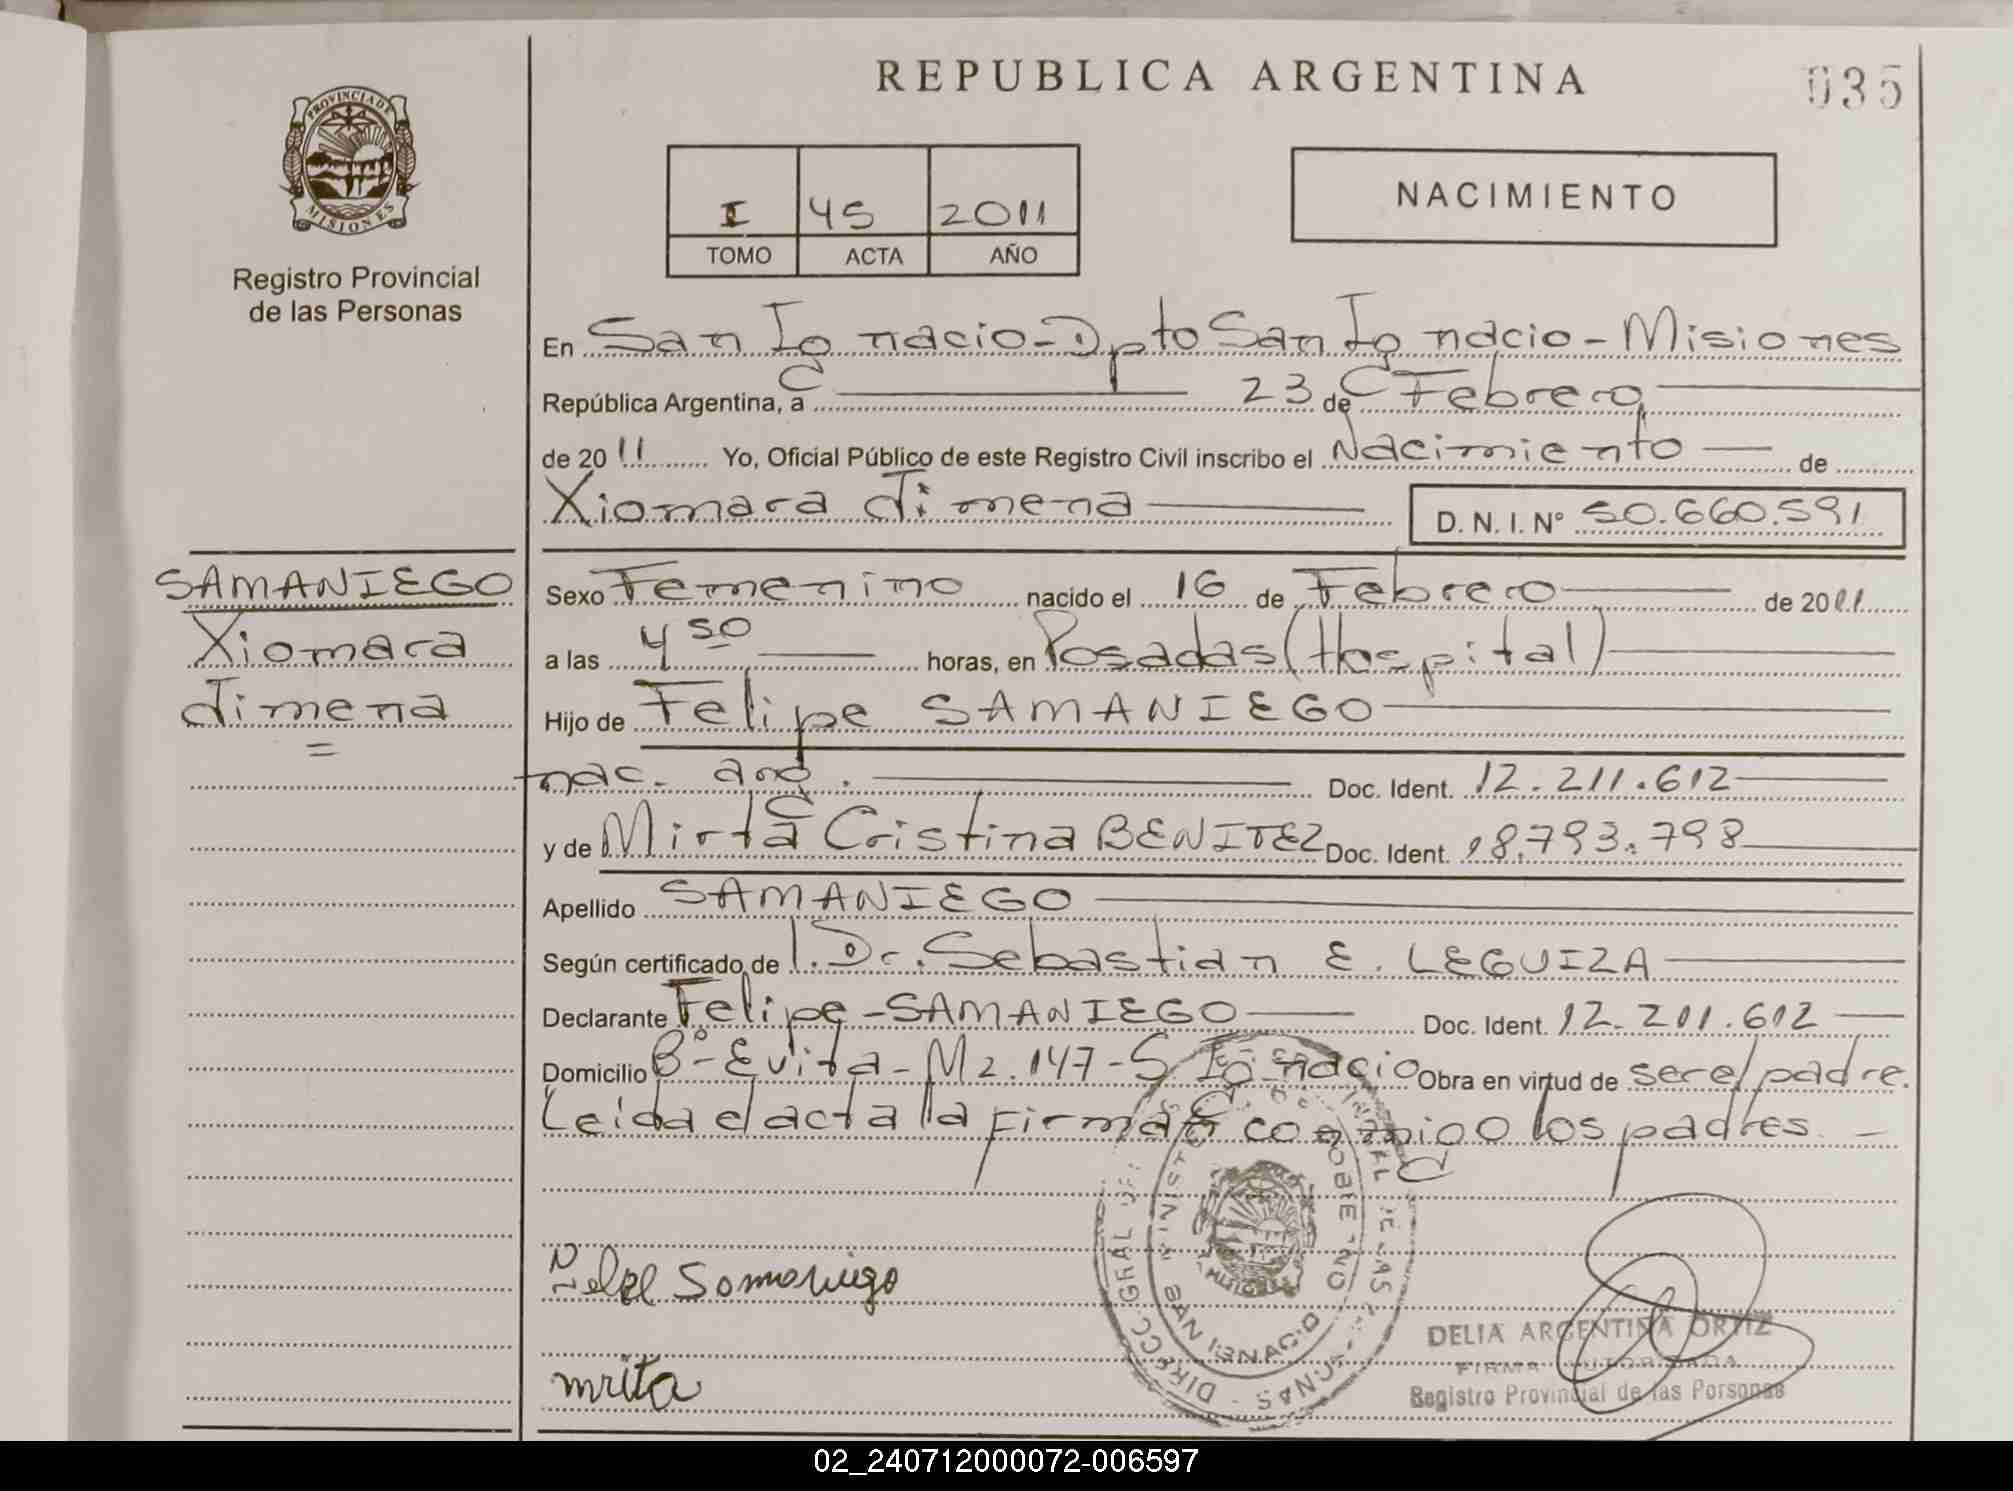 REPUBLICA ARGENTINA
035
PROVINCIA DE MISIONES
Registro Provincial
de las Personas
I 45 2011
TOMO ACTA AÑO
NACIMIENTO
En San Ignacio - Dpto San Ignacio - Misiones
República Argentina, a 23 de Febrero
de 2011 Yo, Oficial Público de este Registro Civil inscribo el Nacimiento de
Xiomara Jimena D. N. I. Nº 50.660.591
SAMANIEGO
Xiomara
Jimena
Sexo Femenino nacido el 16 de Febrero de 2011
a las 4 50 horas, en Posadas (Hospital)
Hijo de Felipe SAMANIEGO
nac. arg. Doc. Ident. 12.211.612
y de Mirta Cristina BENITEZ Doc. Ident. 18.793.798
Apellido SAMANIEGO
Según certificado de Dr. Sebastian E. LEGUIZA
Declarante Felipe - SAMANIEGO Doc. Ident. 12.211.612
Domicilio Bº - Evita - Mz. 147 - S Ignacio Obra en virtud de ser el padre.
Leida el acta la firman conmigo los padres. -
Samaniego
mrita
SAN IGNACIO
MISIONES
DELIA ARGENTINA ORTIZ
FIRMA AUTORIZADA
Registro Provincial de las Personas
02_240712000072-006597